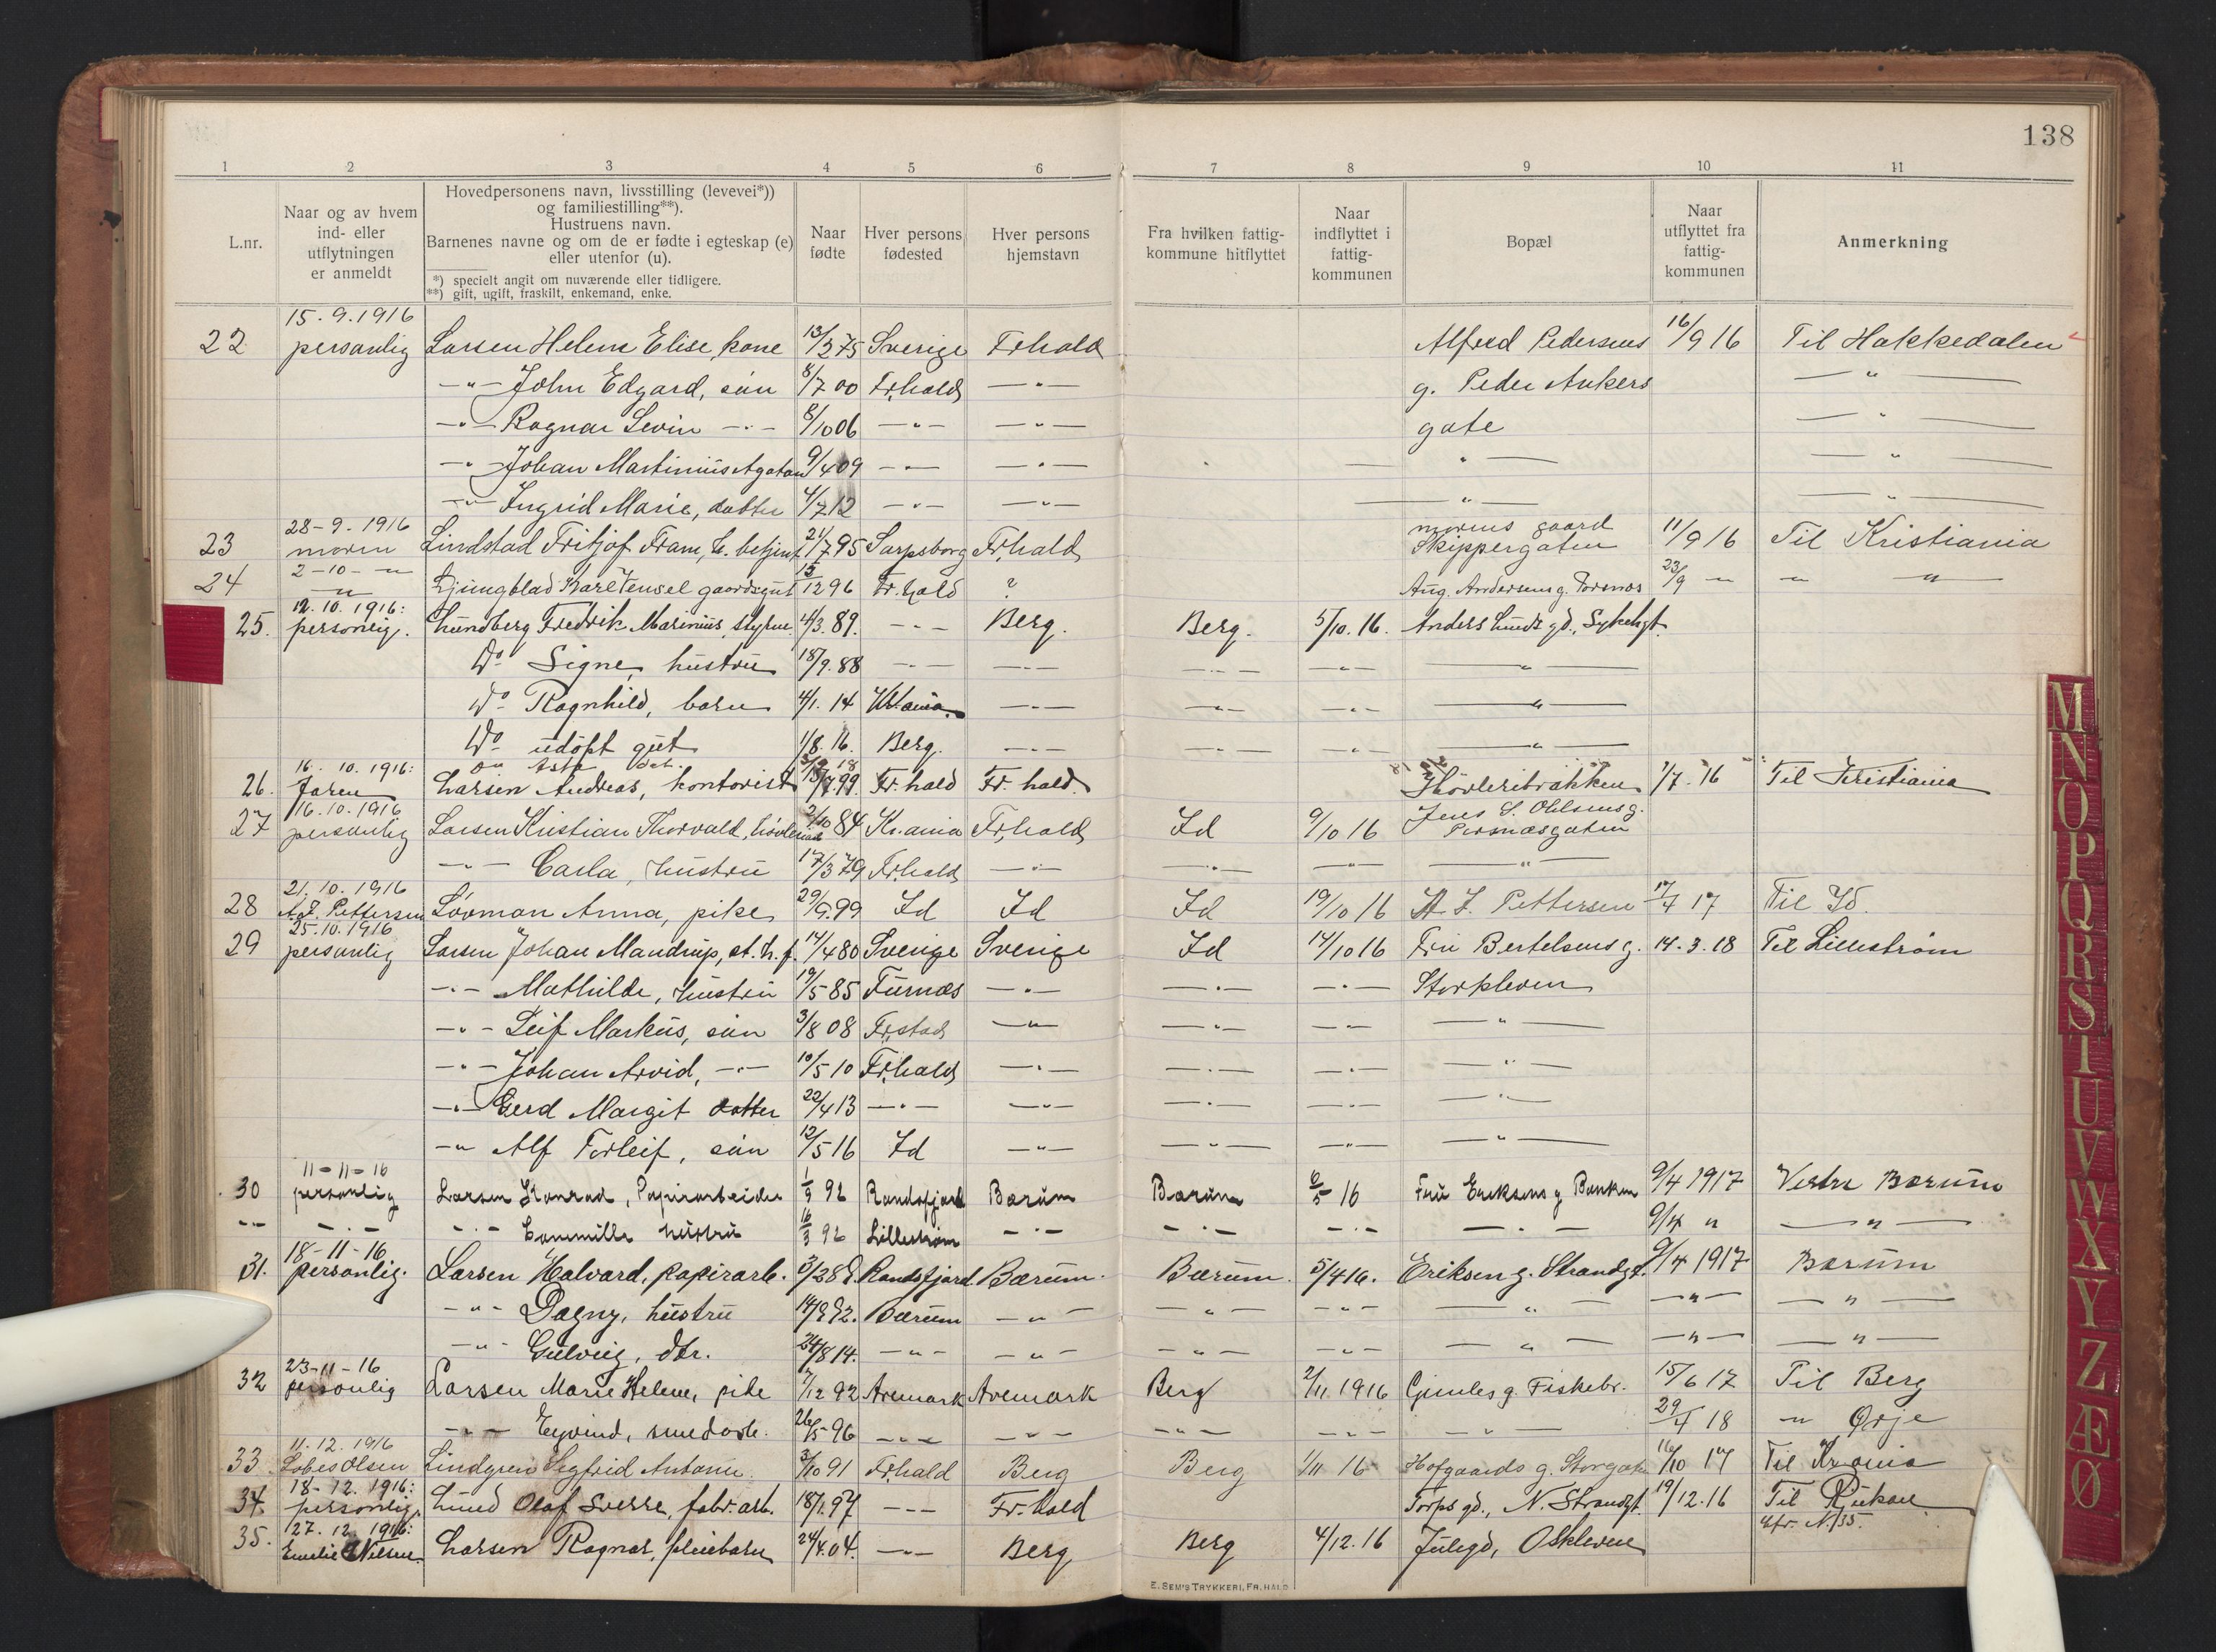 138
1 2 3 4 5 6 7 8 9 10 11
L.nr.
Naar og av hvem
ind- eller
utflytningen
er anmeldt
Hovedpersonens navn, livsstilling (levevei*))
og familiestilling**).
Hustruens navn.
Barnenes navne og om de er fødte i egteskap (e)
eller utenfor (u).
*) specielt angit om nuværende eller tidligere.
**) gift, ugift, fraskilt, enkemand, enke.
Naar
fødte
Hver persons
fødested
Hver persons
hjemstavn
Fra hvilken fattig-
kommune hitflyttet
Naar
indflyttet i
fattig-
kommunen
Bopæl
Naar
utflyttet fra
fattig-
kommunen
Anmerkning
15.9.1916
22 personlig Larsen Helene Elise, kone 13/2 75 Sverige Fr.hald Alfred Pedersens 16/9 16 Til Hakkedalen
-"- John Edgard, søn 8/7 00 Fr.hald -"- g. Peder Ankers -"-
-"- Ragnar Levin -"- 8/10 06 -"- -"- gate -"-
-"- Johan Martinius Agaton 9/4 09 -"- -"- -"- -"-
-"- Ingrid Marie, datter 4/7 12 -"- -"- -"- -"-
28-9-1916 morens gaard
23 moren Lindstad Fritjof Fram, h. betjent 21/7 95 Sarpsborg Fr.hald Skippergaten 11/9 16 Til Kristiania
2-10- -"-
24 -"- Ljungblad Karl Vensel gaardsgut 13/12 96 Fr.hald ? Aug. Andersens g. Porsnes 23/9 -"- -"- -"-
12.10.1916:
25. personlig. Lundberg Fredrik Marinius, styrm. 4/3.89. -"- Berg. Berg. 5/10.16. Anders Lunds gd., Sykehgt.
Do Signe, hustru 18/9.88 -"- -"- -"- -"- -"-
Do Ragnhild, barn 4/1.14 Kr.ania. -"- -"- -"- -"-
Do udøpt gut 1/8.16. Berg. -"- -"- -"- -"-
Do Asta
16.10.1916:
26. Faren Larsen Andreas, kontorist 15/7.99. Fr.hald Fr.hald. Høvleribrakken 1/7.16 Til Kristiania
16.10.1916 Jens S. Ohlsens g.
27 personlig Larsen Kristian Thorvald, høvleriarb 2/10 84 Kr.ania Fr.hald Id 9/10 16 Porsnesgaten
-"- Carla, hustru 17/3 79 Fr.hald -"- -"- -"- -"-
21.10.1916
28 A.F. Pettersen Lövman Anna, pike 29/9.99 Id Id Id 19/10 16 A. F. Pettersen 17/4 17 Til Id.
25.10.1916
29 personlig Larsen Johan Mandrup, st. h. f. 14/4 80 Sverige Sverige Id 14/10 16 Fru Bertelsens g. 14.3.18 Til Lillestrøm
-"- Mathilde, hustru 19/5 85 Furnes -"- -"- -"- Storkleven
-"- Leif Markus, søn 3/8 08 Fr.stad -"- -"- -"- -"-
-"- Johan Arvid, -"- 10/5 10 Fr.hald -"- -"- -"- -"-
-"- Gerd Margit datter 22/4 13 -"- -"- -"- -"- -"-
-"- Alf Torleif, søn 12/5 16 Id -"- -"- -"- -"-
11-11-16
30 personlig Larsen Konrad, Papirarbeider 1/9 92 Randsfjord Bærum Bærum 2/5 16 Fru Eriksens g Banken 9/4 1917 Vestre Bærum
-"- -"- -"- hustru 16/3 92 Lillestrøm -"- -"- -"- -"- 9/4 " -"-
18-11-16
31. personlig. Larsen Halvard, papirarb. 3/2 88. Randsfjord. Bærum. Bærum. 5/4 16. Eriksen g. Strandgt. 9/4 1917 Bærum
-"- Dagny, hustru 14/9 92. Bærum -"- -"- -"- -"- -"- -"-
-"- Gulveig, dtr. 24/8 14. -"- -"- -"- -"- -"- -"- -"-
23-11-16
32 personlig Larsen Marie Helene, pike 7/12 92 Aremark Aremark Berg 2/11 1916 Gimles g. Fiskebr. 15/6 17 Til Berg
-"- Eyvind, smedarb. 26/5-96 -"- -"- -"- -"- -"- 29/4 18 -"- Ørje
11.12.1916
33 Olsen Lindgren Segfrid Antonie. 3/10 91 Fr.hald Berg Berg 1/11 16 Hofgaards g. Storgaten 16/10 17 Til Kr.ania
18-12.1916:
34. personlig. Lund Olaf Sverre, fabr.arb. 18/1.97 -"- Fr.hald Torps gd., N. Strandgt. 19/12.16 Til Rjukan
27.12.1916: N. 135.
35. Emilie Nilsen. Larsen Ragnar, pleiebarn 24/4.04. -"- Berg Berg 4/12.16 Julegd, Oskleven
E. SEM'S TRYKKERI, FR.HALD
M N O P Q R S T U V W X Y Z Æ Ø